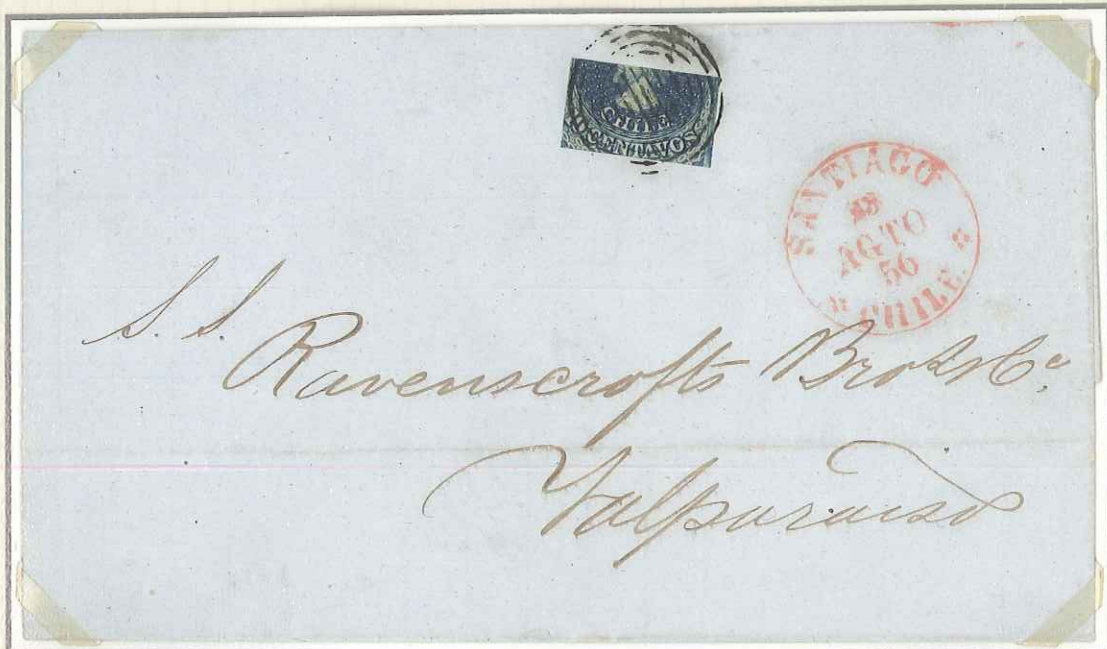 CHILE
CENTAVOS
SANTIAGO
AGTO
56
CHILE
S. S.
Ravenscrofts Bros & Co.
Valparaiso